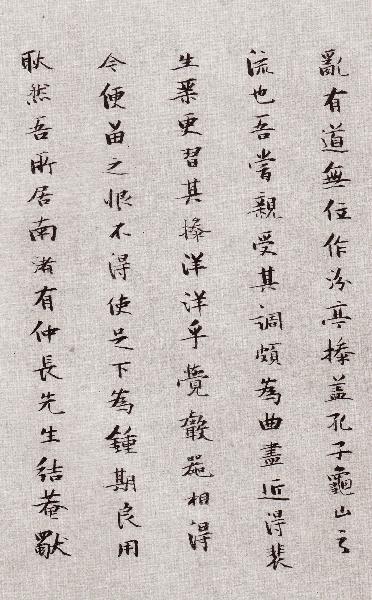 亂有道無位作汾亭操蓋孔子龜山之
流也吾嘗親受其調頗為曲盡近得裴
生琹更習其操洋洋乎覺聲器相得
今便留之恨不得使足下為鍾期良用
耿然吾所居南渚有仲長先生結菴